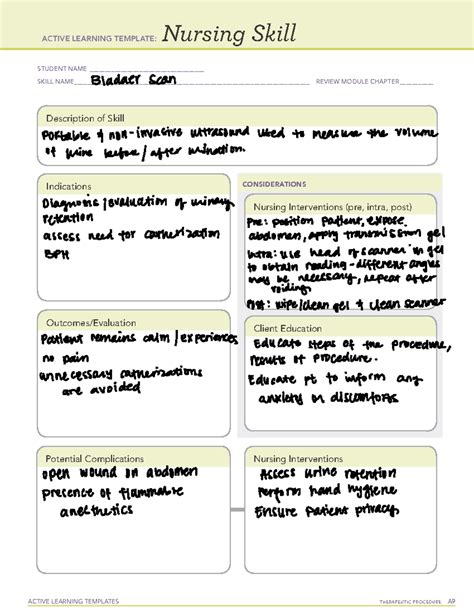 ACTIVE LEARNING TEMPLATE: Nursing Skill
STUDENT NAME
SKILL NAME Bladder Scan REVIEW MODULE CHAPTER
Description of Skill
Portable & non-invasive ultrasound used to measure the volume
of urine before/after urination.
Indications
Diagnosis/evaluation of urinary
retention
assess need for catherization
BPH
CONSIDERATIONS
Nursing Interventions (pre, intra, post)
Pre: position patient, expose
abdomen, apply transmission gel
Intra: use head of scanner in gel
to obtain reading - different angles
may be necessary, repeat after
voiding.
Post: wipe/clean gel & clean scanner
Outcomes/Evaluation
Patient remains calm / experiences
no pain
unnecessary catherizations
are avoided
Client Education
Educate steps of the procedure,
results of procedure.
Educate pt to inform any
anxiety or discomforts
Potential Complications
open wound on abdomen
presence of flammable
anesthetics
Nursing Interventions
Assess urine retention
Perform hand hygiene
Ensure patient privacy
ACTIVE LEARNING TEMPLATES
THERAPEUTIC PROCEDURE A9